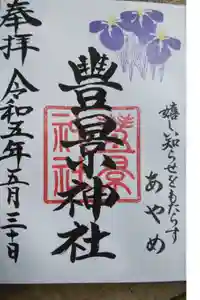 嬉し知らせをもたらす
あやめ
豊景神社
奉拝 令和五年五月三十日